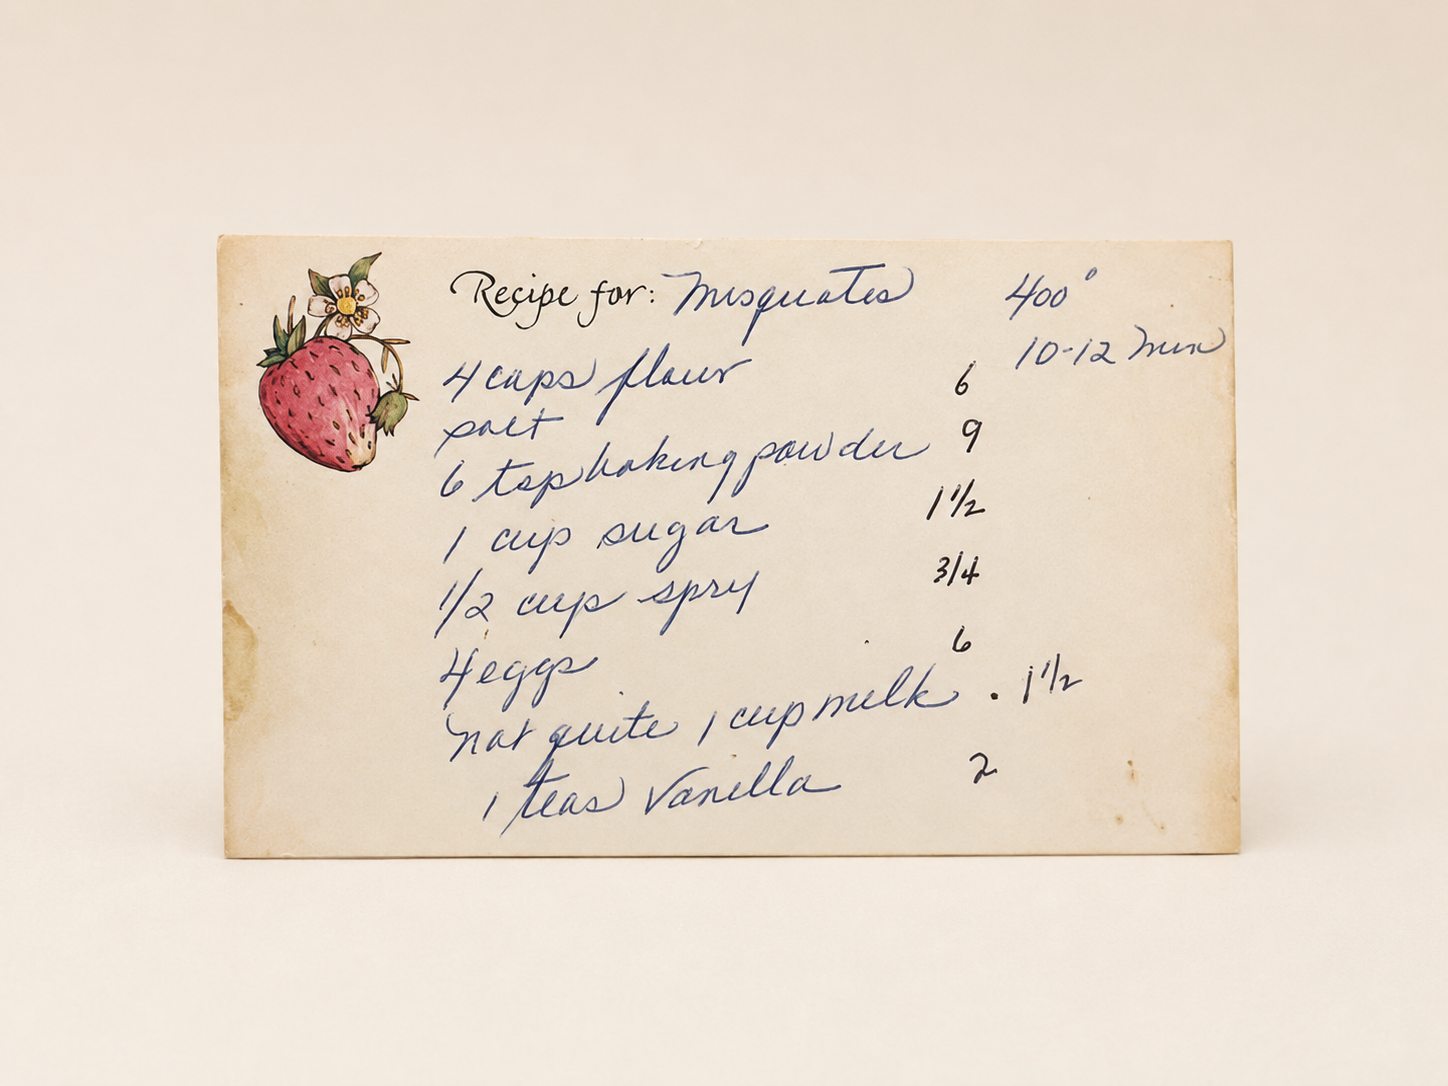 Recipe for: Misquates 400°
10-12 min
4 cups flour 6
salt
6 tsp baking powder 9
1 cup sugar 1 1/2
1/2 cup spry 3/4
4 eggs 6
not quite 1 cup milk . 1 1/2
1 teas vanilla 2